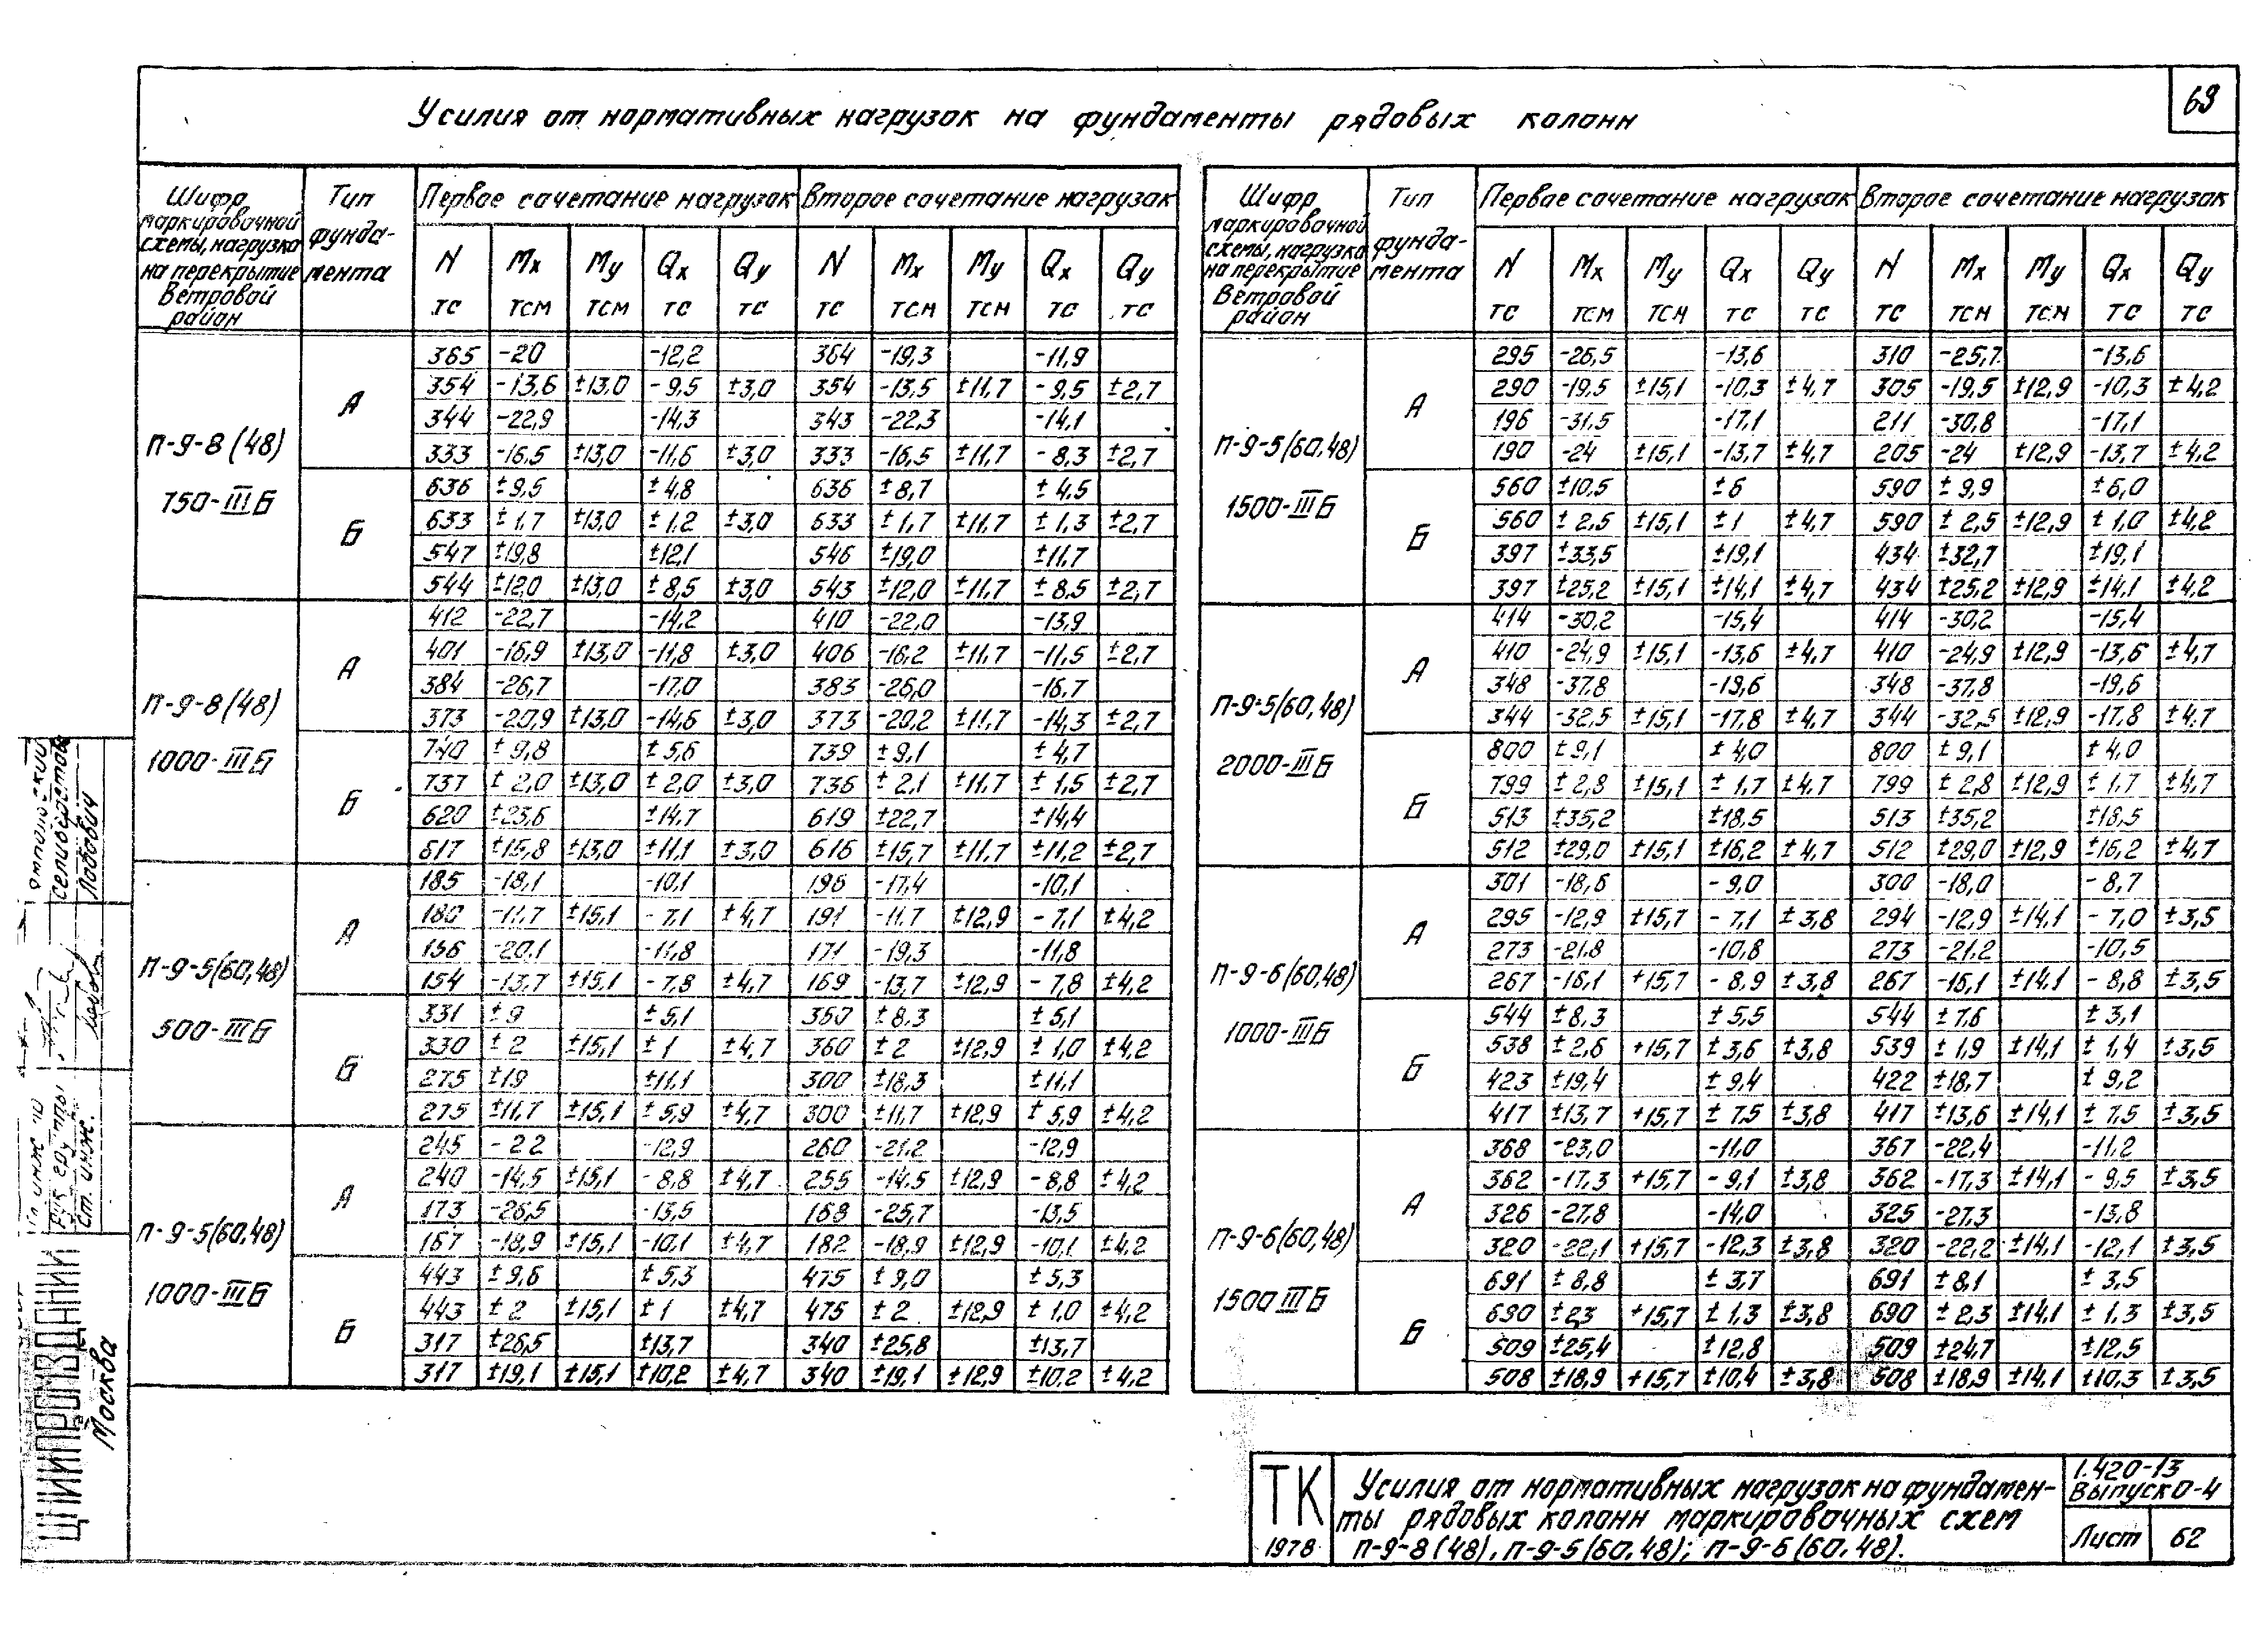 69
Усилия от нормативных нагрузок на фундаменты рядовых колонн
Шифр маркировочной схемы, нагрузка на перекрытие Ветровой район | Тип фундамента | Первое сочетание нагрузок | Второе сочетание нагрузок
N тс | Mx тсм | My тсм | Qx тс | Qy тс | N тс | Mx тсм | My тсм | Qx тс | Qy тс
П-9-8(48) 750-IIIБ
А
365 -20 -12,2 364 -19,3 -11,9
354 -13,6 ±13,0 -9,5 ±3,0 354 -13,5 ±11,7 -9,5 ±2,7
344 -22,9 -14,3 343 -22,3 -14,1
333 -16,5 ±13,0 -11,6 ±3,0 333 -16,5 ±11,7 -8,3 ±2,7
Б
636 ±9,5 ±4,8 636 ±8,7 ±4,5
633 ±1,7 ±13,0 ±1,2 ±3,0 633 ±1,7 ±11,7 ±1,3 ±2,7
547 ±19,8 ±12,1 546 ±19,0 ±11,7
544 ±12,0 ±13,0 ±8,5 ±3,0 543 ±12,0 ±11,7 ±8,5 ±2,7
П-9-8(48) 1000-IIIБ
А
412 -22,7 -14,2 410 -22,0 -13,9
401 -16,9 ±13,0 -11,8 ±3,0 406 -16,2 ±11,7 -11,5 ±2,7
384 -26,7 -17,0 383 -26,0 -16,7
373 -20,9 ±13,0 -14,6 ±3,0 373 -20,2 ±11,7 -14,3 ±2,7
Б
740 ±9,8 ±5,6 739 ±9,1 ±4,7
737 ±2,0 ±13,0 ±2,0 ±3,0 736 ±2,1 ±11,7 ±1,5 ±2,7
620 ±23,6 ±14,7 619 ±22,7 ±14,4
617 ±15,8 ±13,0 ±11,1 ±3,0 616 ±15,7 ±11,7 ±11,2 ±2,7
П-9-5(60,48) 500-IIIБ
А
185 -18,1 -10,1 196 -17,4 -10,1
180 -11,7 ±15,1 -7,1 ±4,7 191 -11,7 ±12,9 -7,1 ±4,2
156 -20,1 -11,8 171 -19,3 -11,8
154 -13,7 ±15,1 -7,8 ±4,7 169 -13,7 ±12,9 -7,8 ±4,2
Б
331 ±9 ±5,1 360 ±8,3 ±5,1
330 ±2 ±15,1 ±1 ±4,7 360 ±2 ±12,9 ±1,0 ±4,2
275 ±19 ±11,1 300 ±18,3 ±11,1
275 ±11,7 ±15,1 ±5,9 ±4,7 300 ±11,7 ±12,9 ±5,9 ±4,2
П-9-5(60,48) 1000-IIIБ
А
245 -22 -12,9 260 -21,2 -12,9
240 -14,5 ±15,1 -8,8 ±4,7 255 -14,5 ±12,9 -8,8 ±4,2
173 -26,5 -13,5 168 -25,7 -13,5
167 -18,9 ±15,1 -10,1 ±4,7 182 -18,9 ±12,9 -10,1 ±4,2
Б
443 ±9,6 ±5,3 475 ±9,0 ±5,3
443 ±2 ±15,1 ±1 ±4,7 475 ±2 ±12,9 ±1,0 ±4,2
317 ±26,5 ±13,7 340 ±25,8 ±13,7
317 ±19,1 ±15,1 ±10,2 ±4,7 340 ±19,1 ±12,9 ±10,2 ±4,2
Шифр маркировочной схемы, нагрузка на перекрытие Ветровой район | Тип фундамента | Первое сочетание нагрузок | Второе сочетание нагрузок
N тс | Mx тсм | My тсм | Qx тс | Qy тс | N тс | Mx тсм | My тсм | Qx тс | Qy тс
П-9-5(60,48) 1500-IIIБ
А
295 -26,5 -13,6 310 -25,7 -13,6
290 -19,5 ±15,1 -10,3 ±4,7 305 -19,5 ±12,9 -10,3 ±4,2
196 -31,5 -17,1 211 -30,8 -17,1
190 -24 ±15,1 -13,7 ±4,7 205 -24 ±12,9 -13,7 ±4,2
Б
560 ±10,5 ±6 590 ±9,9 ±6,0
560 ±2,5 ±15,1 ±1 ±4,7 590 ±2,5 ±12,9 ±1,0 ±4,2
397 ±33,5 ±19,1 434 ±32,7 ±19,1
397 ±25,2 ±15,1 ±14,1 ±4,7 434 ±25,2 ±12,9 ±14,1 ±4,2
П-9-5(60,48) 2000-IIIБ
А
414 -30,2 -15,4 414 -30,2 -15,4
410 -24,9 ±15,1 -13,6 ±4,7 410 -24,9 ±12,9 -13,6 ±4,7
348 -37,8 -19,6 348 -37,8 -19,6
344 -32,5 ±15,1 -17,8 ±4,7 344 -32,5 ±12,9 -17,8 ±4,7
Б
800 ±9,1 ±4,0 800 ±9,1 ±4,0
799 ±2,8 ±15,1 ±1,7 ±4,7 799 ±2,8 ±12,9 ±1,7 ±4,7
513 ±35,2 ±18,5 513 ±35,2 ±18,5
512 ±29,0 ±15,1 ±16,2 ±4,7 512 ±29,0 ±12,9 ±16,2 ±4,7
П-9-6(60,48) 1000-IIIБ
А
301 -18,6 -9,0 300 -18,0 -8,7
295 -12,9 ±15,7 -7,1 ±3,8 294 -12,9 ±14,1 -7,0 ±3,5
273 -21,8 -10,8 273 -21,2 -10,5
267 -16,1 +15,7 -8,9 ±3,8 267 -16,1 ±14,1 -8,8 ±3,5
Б
544 ±8,3 ±5,5 544 ±7,6 ±3,1
538 ±2,6 +15,7 ±3,6 ±3,8 539 ±1,9 ±14,1 ±1,4 ±3,5
423 ±19,4 ±9,4 422 ±18,7 ±9,2
417 ±13,7 +15,7 ±7,5 ±3,8 417 ±13,6 ±14,1 ±7,5 ±3,5
П-9-6(60,48) 1500 IIIБ
А
368 -23,0 -11,0 367 -22,4 -11,2
362 -17,3 +15,7 -9,1 ±3,8 362 -17,3 ±14,1 -9,5 ±3,5
326 -27,8 -14,0 325 -27,3 -13,8
320 -22,1 +15,7 -12,3 ±3,8 320 -22,2 ±14,1 -12,1 ±3,5
Б
691 ±8,8 ±3,7 691 ±8,1 ±3,5
690 ±23 +15,7 ±1,3 ±3,8 690 ±2,3 ±14,1 ±1,3 ±3,5
509 ±25,4 ±12,8 509 ±24,7 ±12,5
508 ±18,9 +15,7 ±10,4 ±3,8 508 ±18,9 ±14,1 ±10,3 ±3,5
Селиверстова
Лобович
Рук. группы
Ст. инж.
ЦНИИПРОМЗДАНИЙ
Москва
ТК
1978
Усилия от нормативных нагрузок на фундамен-
ты рядовых колонн маркировочных схем
П-9-8(48), П-9-5(60,48); П-9-6(60,48).
1.420-13
Выпуск 0-4
Лист 62